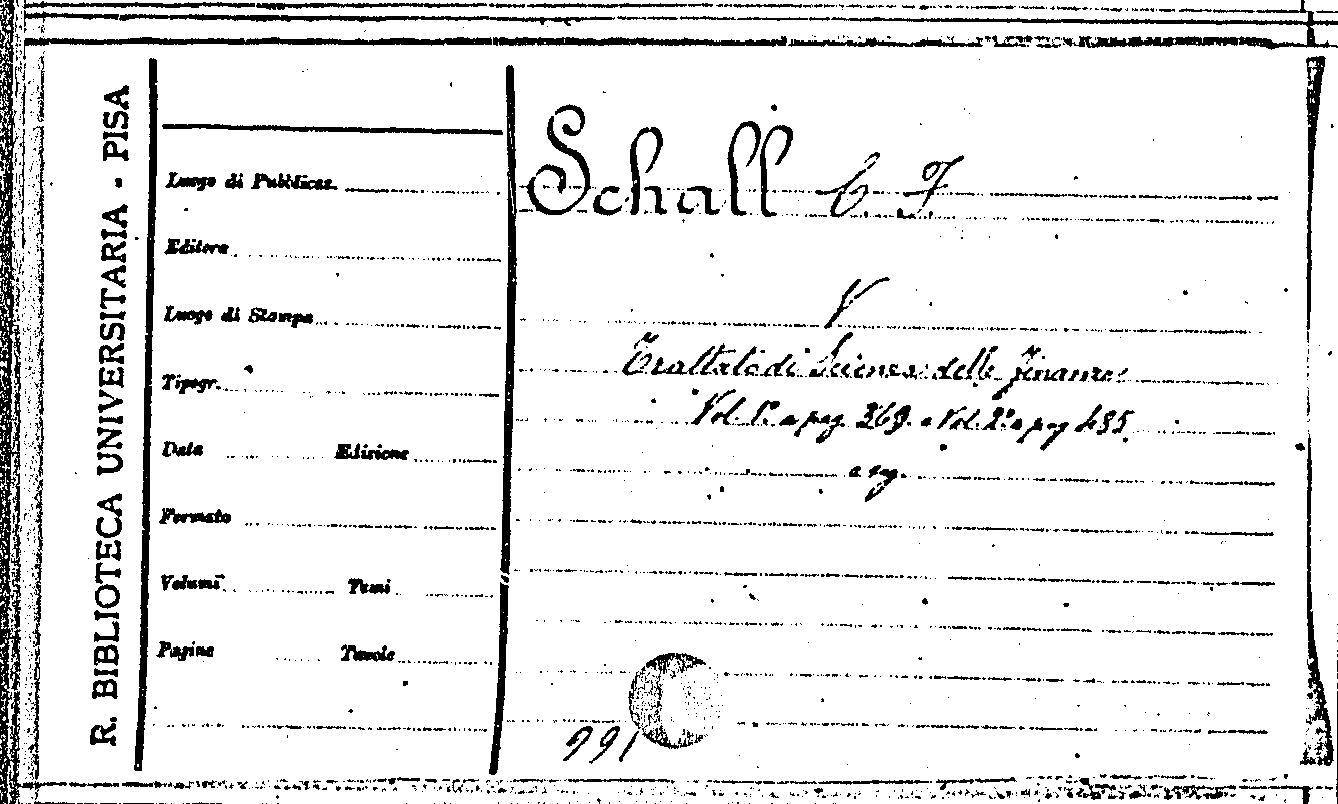 R. BIBLIOTECA UNIVERSITARIA - PISA
Luogo di Pubblicaz.
Editore
Luogo di Stampa
Tipogr.
Data Edizione
Formato
Volumi Tomi
Pagine Tavole
Schall C. F.
V
Trattato di Scienza delle Finanze
Vol. 1º a pag. 369. e Vol. 2º a pag 485.
e sg.
991